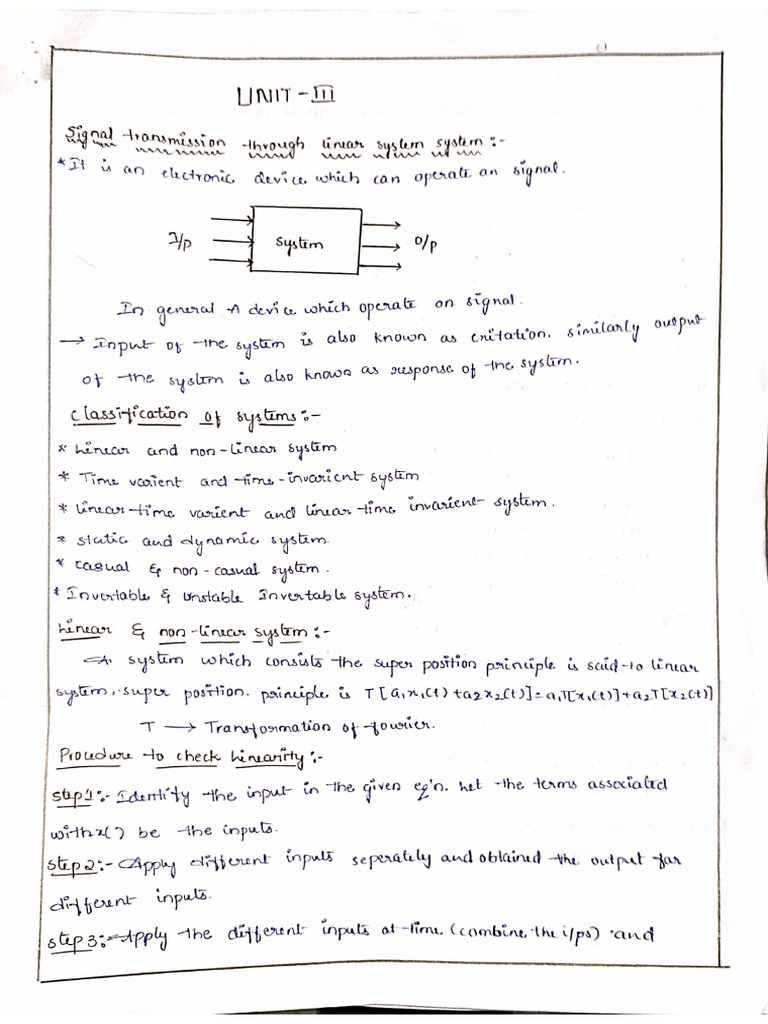 UNIT - III
Signal transmission through linear system system :-
* It is an electronic device which can operate an signal.
I/p System O/p
In general A device which operate on signal.
→ Input of the system is also known as exitation. similarly output
of the system is also known as response of the system.
Classification of systems :-
* Linear and non-linear system
* Time varient and time-invarient system
* Linear-time varient and linear-time invarient system.
* static and dynamic system.
* casual & non-casual system.
* Invertable & unstable Invertable system.
Linear & non-linear system :-
A system which consists the super position principle is said to linear
system, super position. principle is T[a₁x₁(t) + a₂x₂(t)] = a₁T[x₁(t)] + a₂T[x₂(t)]
T → Transformation of fourier.
Procedure to check Linearity :-
step 1 :- Identify the input in the given eq'n. Let the terms associated
with x() be the inputs.
step 2 :- Apply different inputs seperately and obtained the output for
different inputs.
step 3 :- Apply the different inputs at-time (combine the i/ps) and